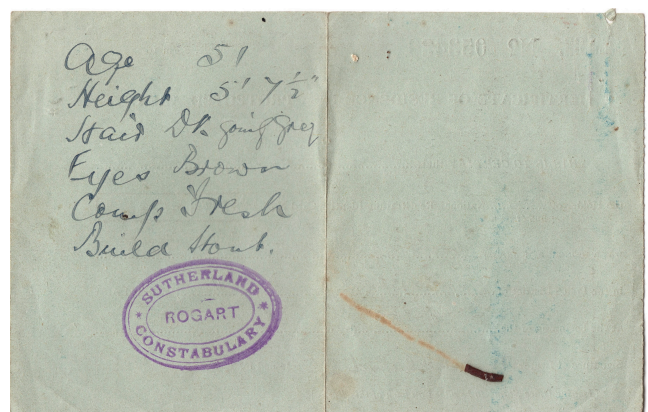 Age 51
Height 5' 7½"
Hair Dk. going grey
Eyes Brown
Comp Fresh
Build Stout.
SUTHERLAND
ROGART
CONSTABULARY